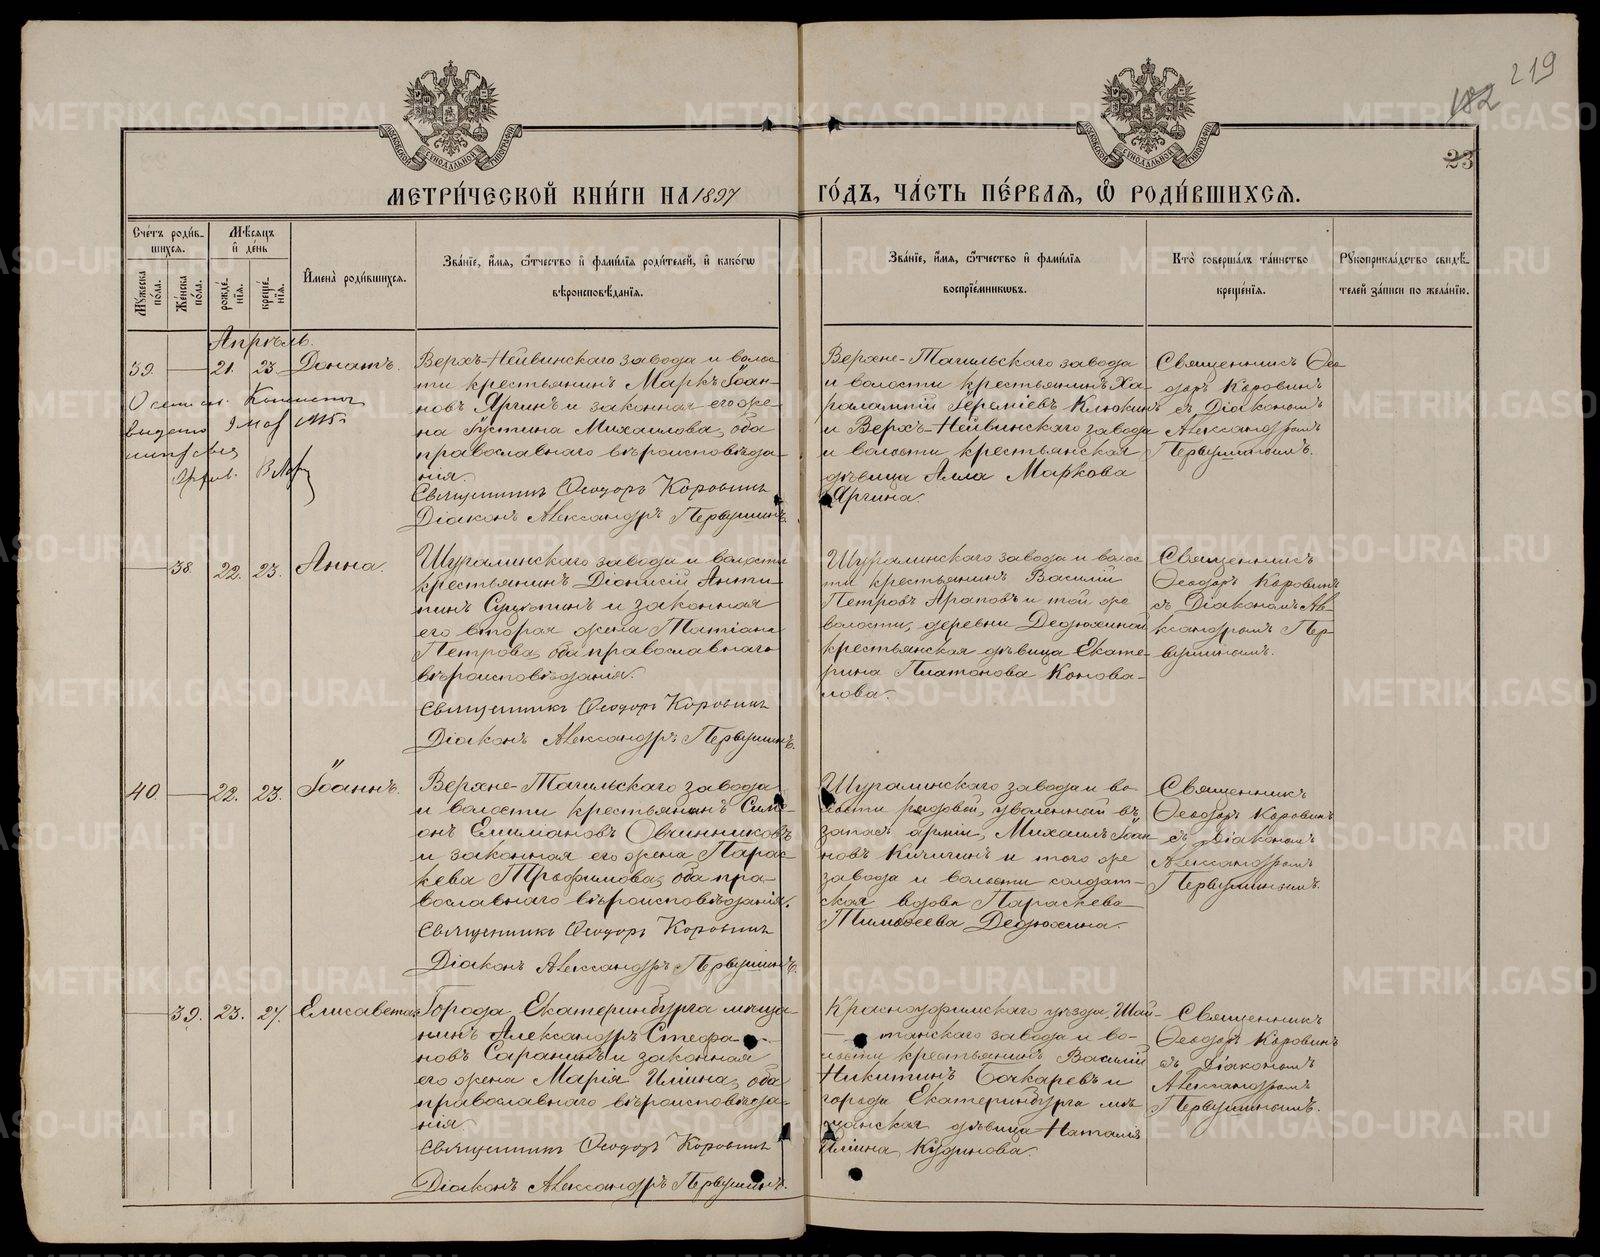 219
182
23
МЕТРИ́ЧЕСКОЙ КНИ́ГИ НА 1897
ГО́ДЪ, ЧА́СТЬ ПЕ́РВАЯ, Ѡ҆ РОДИ́ВШИХСЯ.
Сче́тъ роди́в-
шихся.
Мꙋжеска по́ла.
Же́нска по́ла.
Мѣ́сяцъ
и҆ де́нь
рожде́нїя.
креще́нїя.
И҆мена̀ роди́вшихся.
Зва́нїе, и҆́мя, ѻ҆́тчество и҆ фами́лїя роди́телей, и҆ како́гѡ
вѣроисповѣ́данїя.
Зва́нїе, и҆́мя, ѻ҆́тчество и҆ фами́лїя
воспрїе́мникѡвъ.
Кто̀ соверша́лъ та́инство
креще́нїя.
Рꙋкоприкла́дство свидѣ́-
телей за́писи по жела́нїю.
Апрѣль.
39. — 21. 23. Донатъ.
Верхъ-Нейвинскаго завода и волос-
ти крестьянинъ Маркъ Іоан-
новъ Яргинъ и законная его же-
на Іустина Михаилова, оба
православнаго вѣроисповѣда-
нія.
Священникъ Ѳеодоръ Коровинъ
Діаконъ Александръ Первушинъ.
Верхне-Тагильскаго завода
и волости крестьянинъ Ха-
ралампій Іереміевъ Клюкинъ
и Верхъ-Нейвинскаго завода
и волости крестьянская
дѣвица Алла Маркова
Яргина.
Священникъ Ѳео-
доръ Коровинъ
съ Діакономъ
Александромъ
Первушинымъ.
— 38. 22. 23. Анна.
Шуралинскаго завода и волости
крестьянинъ Діонисій Анти-
пинъ и законная
его вторая жена Татіана
Петрова, оба православнаго
вѣроисповѣданія.
Священникъ Ѳеодоръ Коровинъ
Діаконъ Александръ Первушинъ.
Шуралинскаго завода и волос-
ти крестьянинъ Василій
Петровъ Араповъ и той же
волости, деревни Дедюхиной
крестьянская дѣвица Екате-
рина Платонова Конова-
лова.
Священникъ
Ѳеодоръ Коровинъ
съ Діакономъ Але-
ксандромъ Пер-
вушинымъ.
40. — 22. 23. Іоаннъ.
Верхне-Тагильскаго завода
и волости крестьянинъ Симе-
онъ Емимановъ Овчинниковъ
и законная его жена Парас-
кева Трофимова, оба пра-
вославнаго вѣроисповѣданія.
Священникъ Ѳеодоръ Коровинъ
Діаконъ Александръ Первушинъ.
Шуралинскаго завода и во-
лости рядовой, уволенный въ
запасъ арміи, Михаилъ Іоан-
новъ Кичигинъ и того же
завода и волости солдат-
ская вдова Параскева
Тимоѳеева Дедюхина.
Священникъ
Ѳеодоръ Коровинъ
съ Діакономъ
Александромъ
Первушинымъ.
— 39. 23. 27. Елисавета
Города Екатеринбурга мѣща-
нинъ Александръ Стефа-
новъ Саранинъ и законная
его жена Марія Иліина, оба
православнаго вѣроисповѣда-
нія.
Священникъ Ѳеодоръ Коровинъ
Діаконъ Александръ Первушинъ.
Красноуфимскаго уѣзда, Шай-
танскаго завода и во-
лости крестьянинъ Василій
Никитинъ Бочкаревъ и
города Екатеринбурга мѣ-
щанская дѣвица Наталія
Иліина Кудинова.
Священникъ
Ѳеодоръ Коровинъ
съ Діакономъ
Александромъ
Первушинымъ.